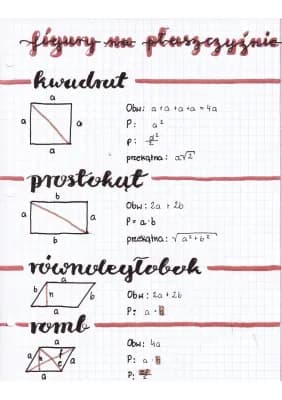 figury na płaszczyźnie
kwadrat
a
a
a
a
Obw: a+a+a+a = 4a
P: a²
P: d²/2
przekątna: a√2
prostokąt
b
a
a
b
Obw: 2a + 2b
P = a·b
przekątna: √a²+b²
równoległobok
b
a
h
a
b
Obw: 2a + 2b
P: a · h
romb
a
a
h
f
e
a
a
Obw: 4a
P: a · h
P: